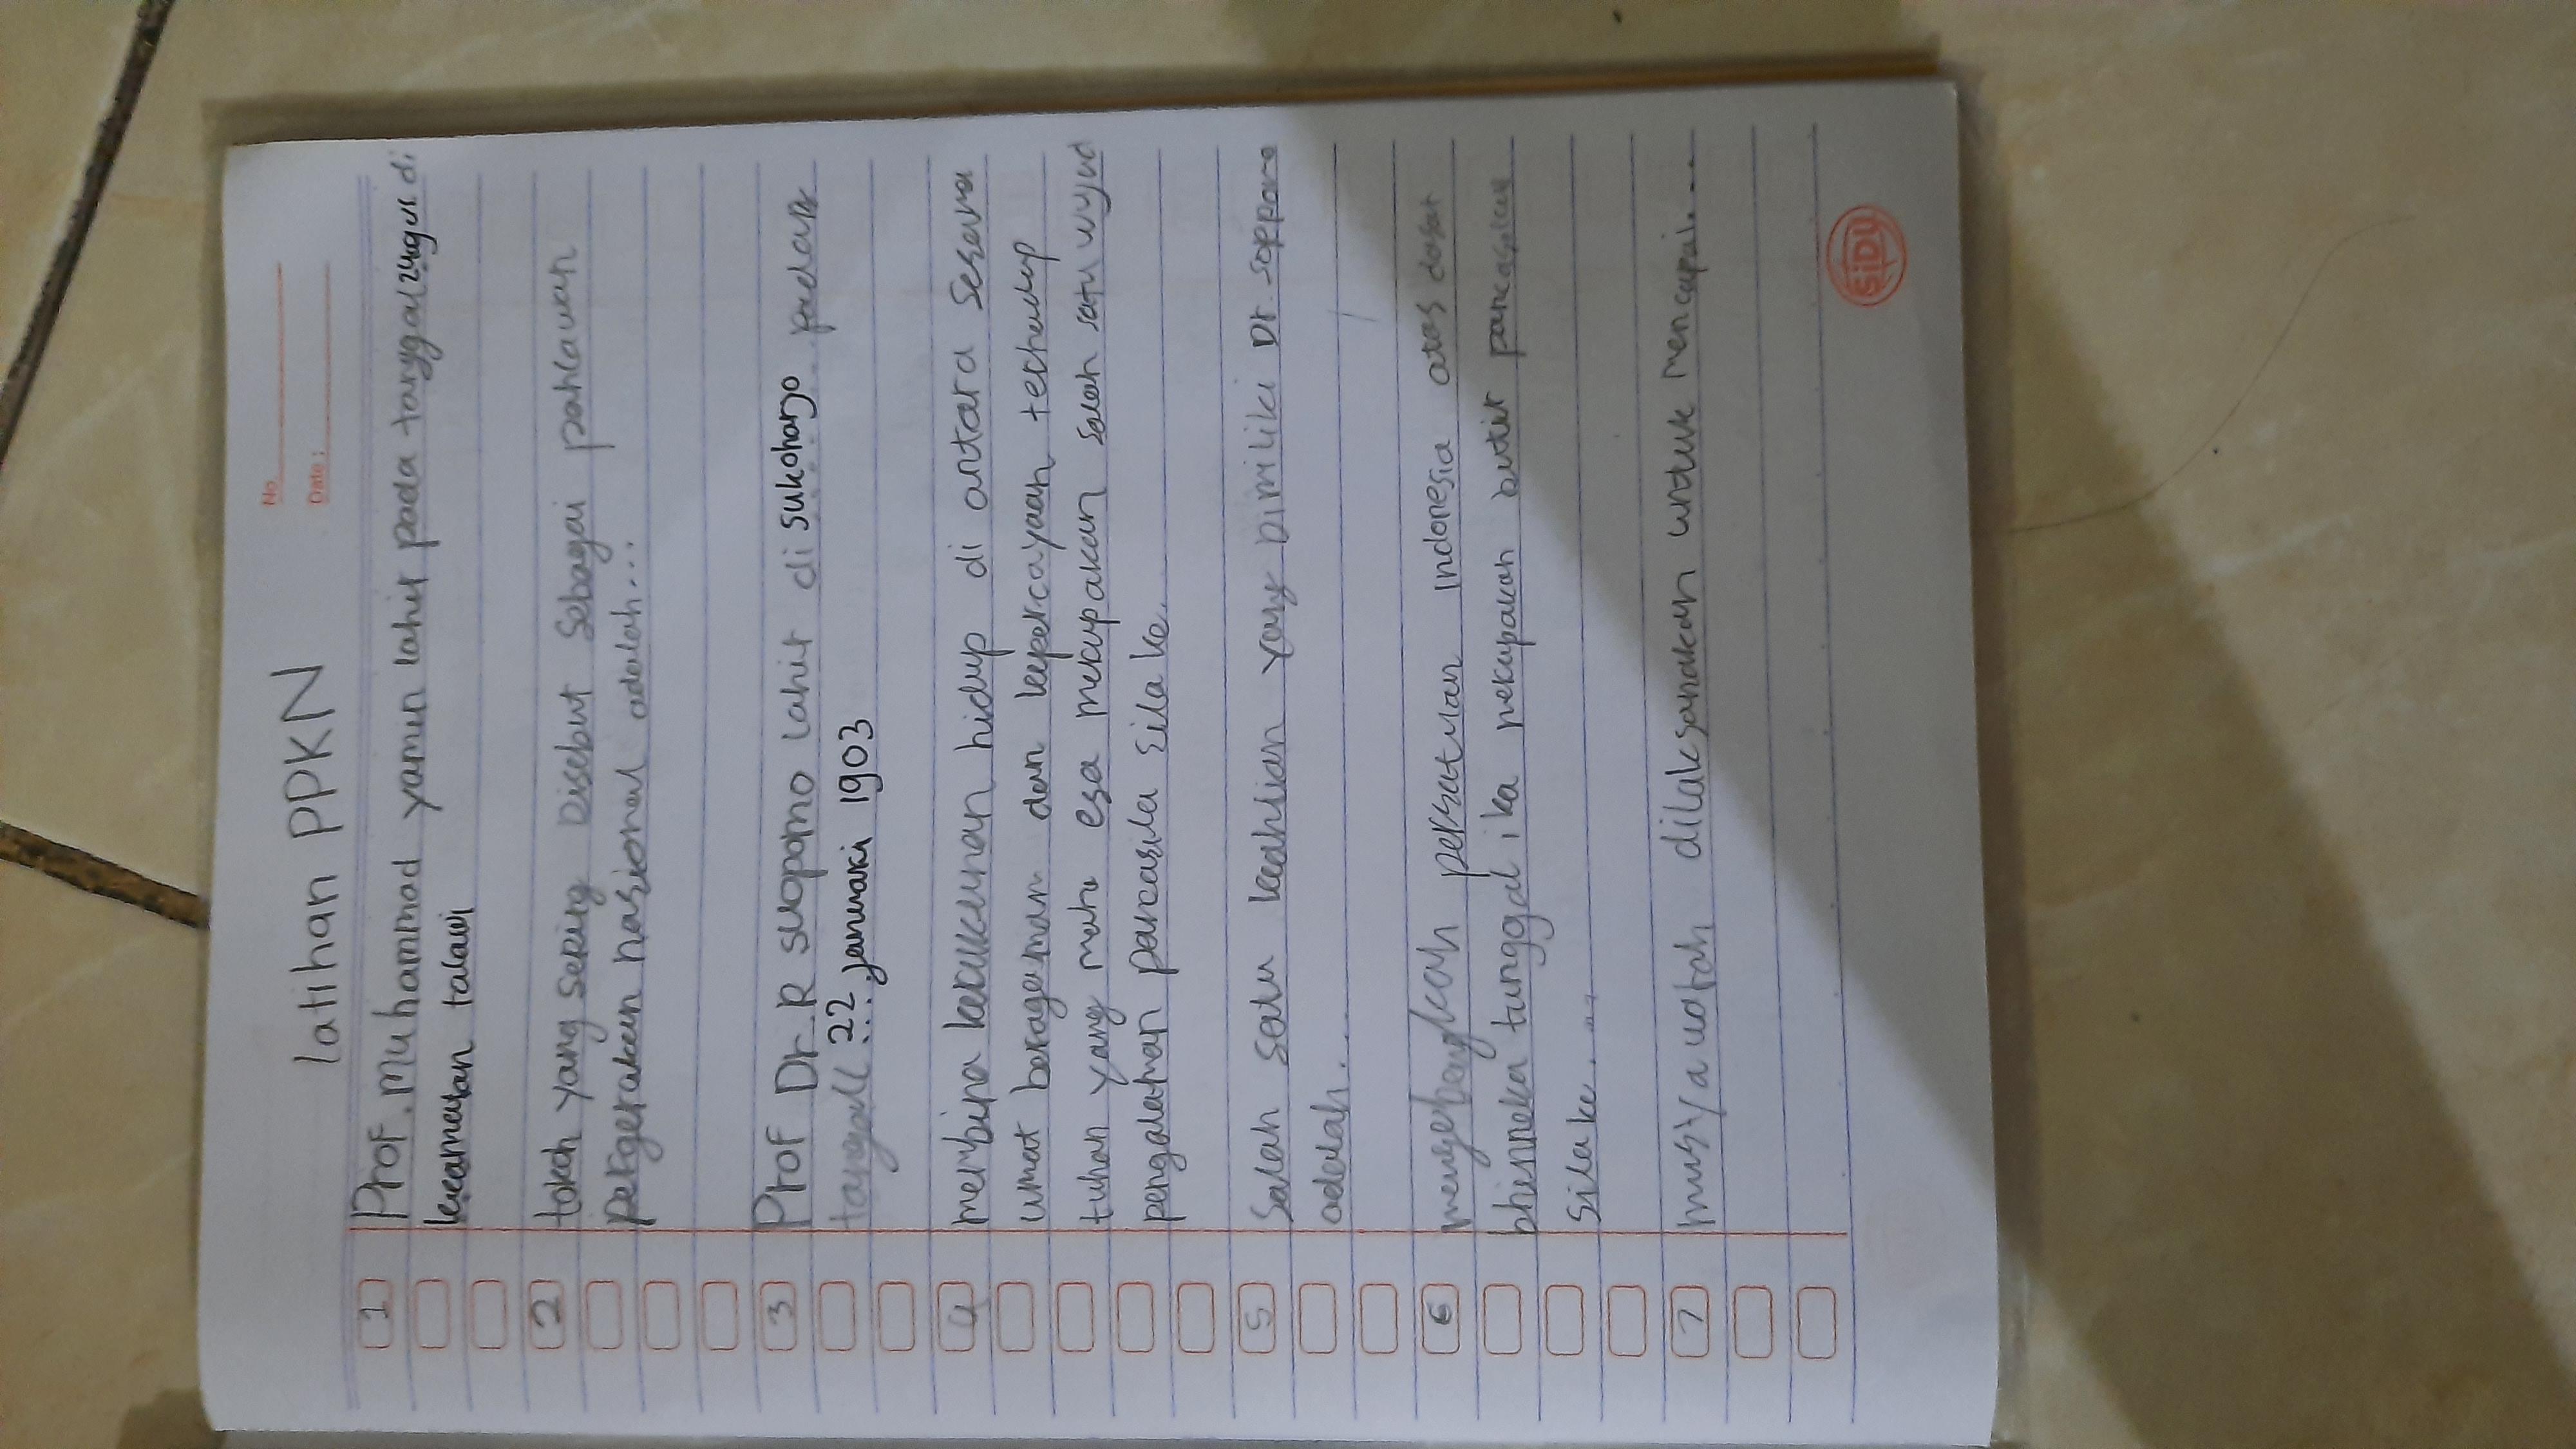 latihan PPKN
No
Date:
1 Prof. Muhammad yamin lahir pada tanggal 24 agus di
kecamatan talawi
2 tokoh yang sering Disebut sebagai pahlawan
pergerakan nasional adalah...
3 Prof Dr. R suopomo lahir di sukoharjo pada
tanggall 22 januari 1903
4 membina kerukunan hidup di antara sesama
umat beragaman dan kepercayaan terhadap
tuhan yang maha esa merupakan salah satu wujud
pengalaman pancasila sila ke.
5 Salah satu keahlian yang Dimiliki Dr. soppomo
adalah....
6 persatuan indonesia atas dasar
bhinneka tunggal ika merupakan butir pancasila
Sila ke....
7 musyawarah dilaksanakan untuk mencapai....
SiDU